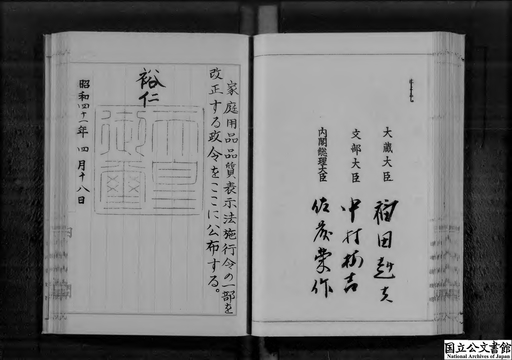 大蔵大臣 福田赳夫
文部大臣 中村梅吉
内閣総理大臣 佐藤榮作
家庭用品品質表示法施行令の一部を
改正する政令をここに公布する。
裕仁
天皇御璽
昭和四十一年四月十八日
国立公文書館
National Archives of Japan